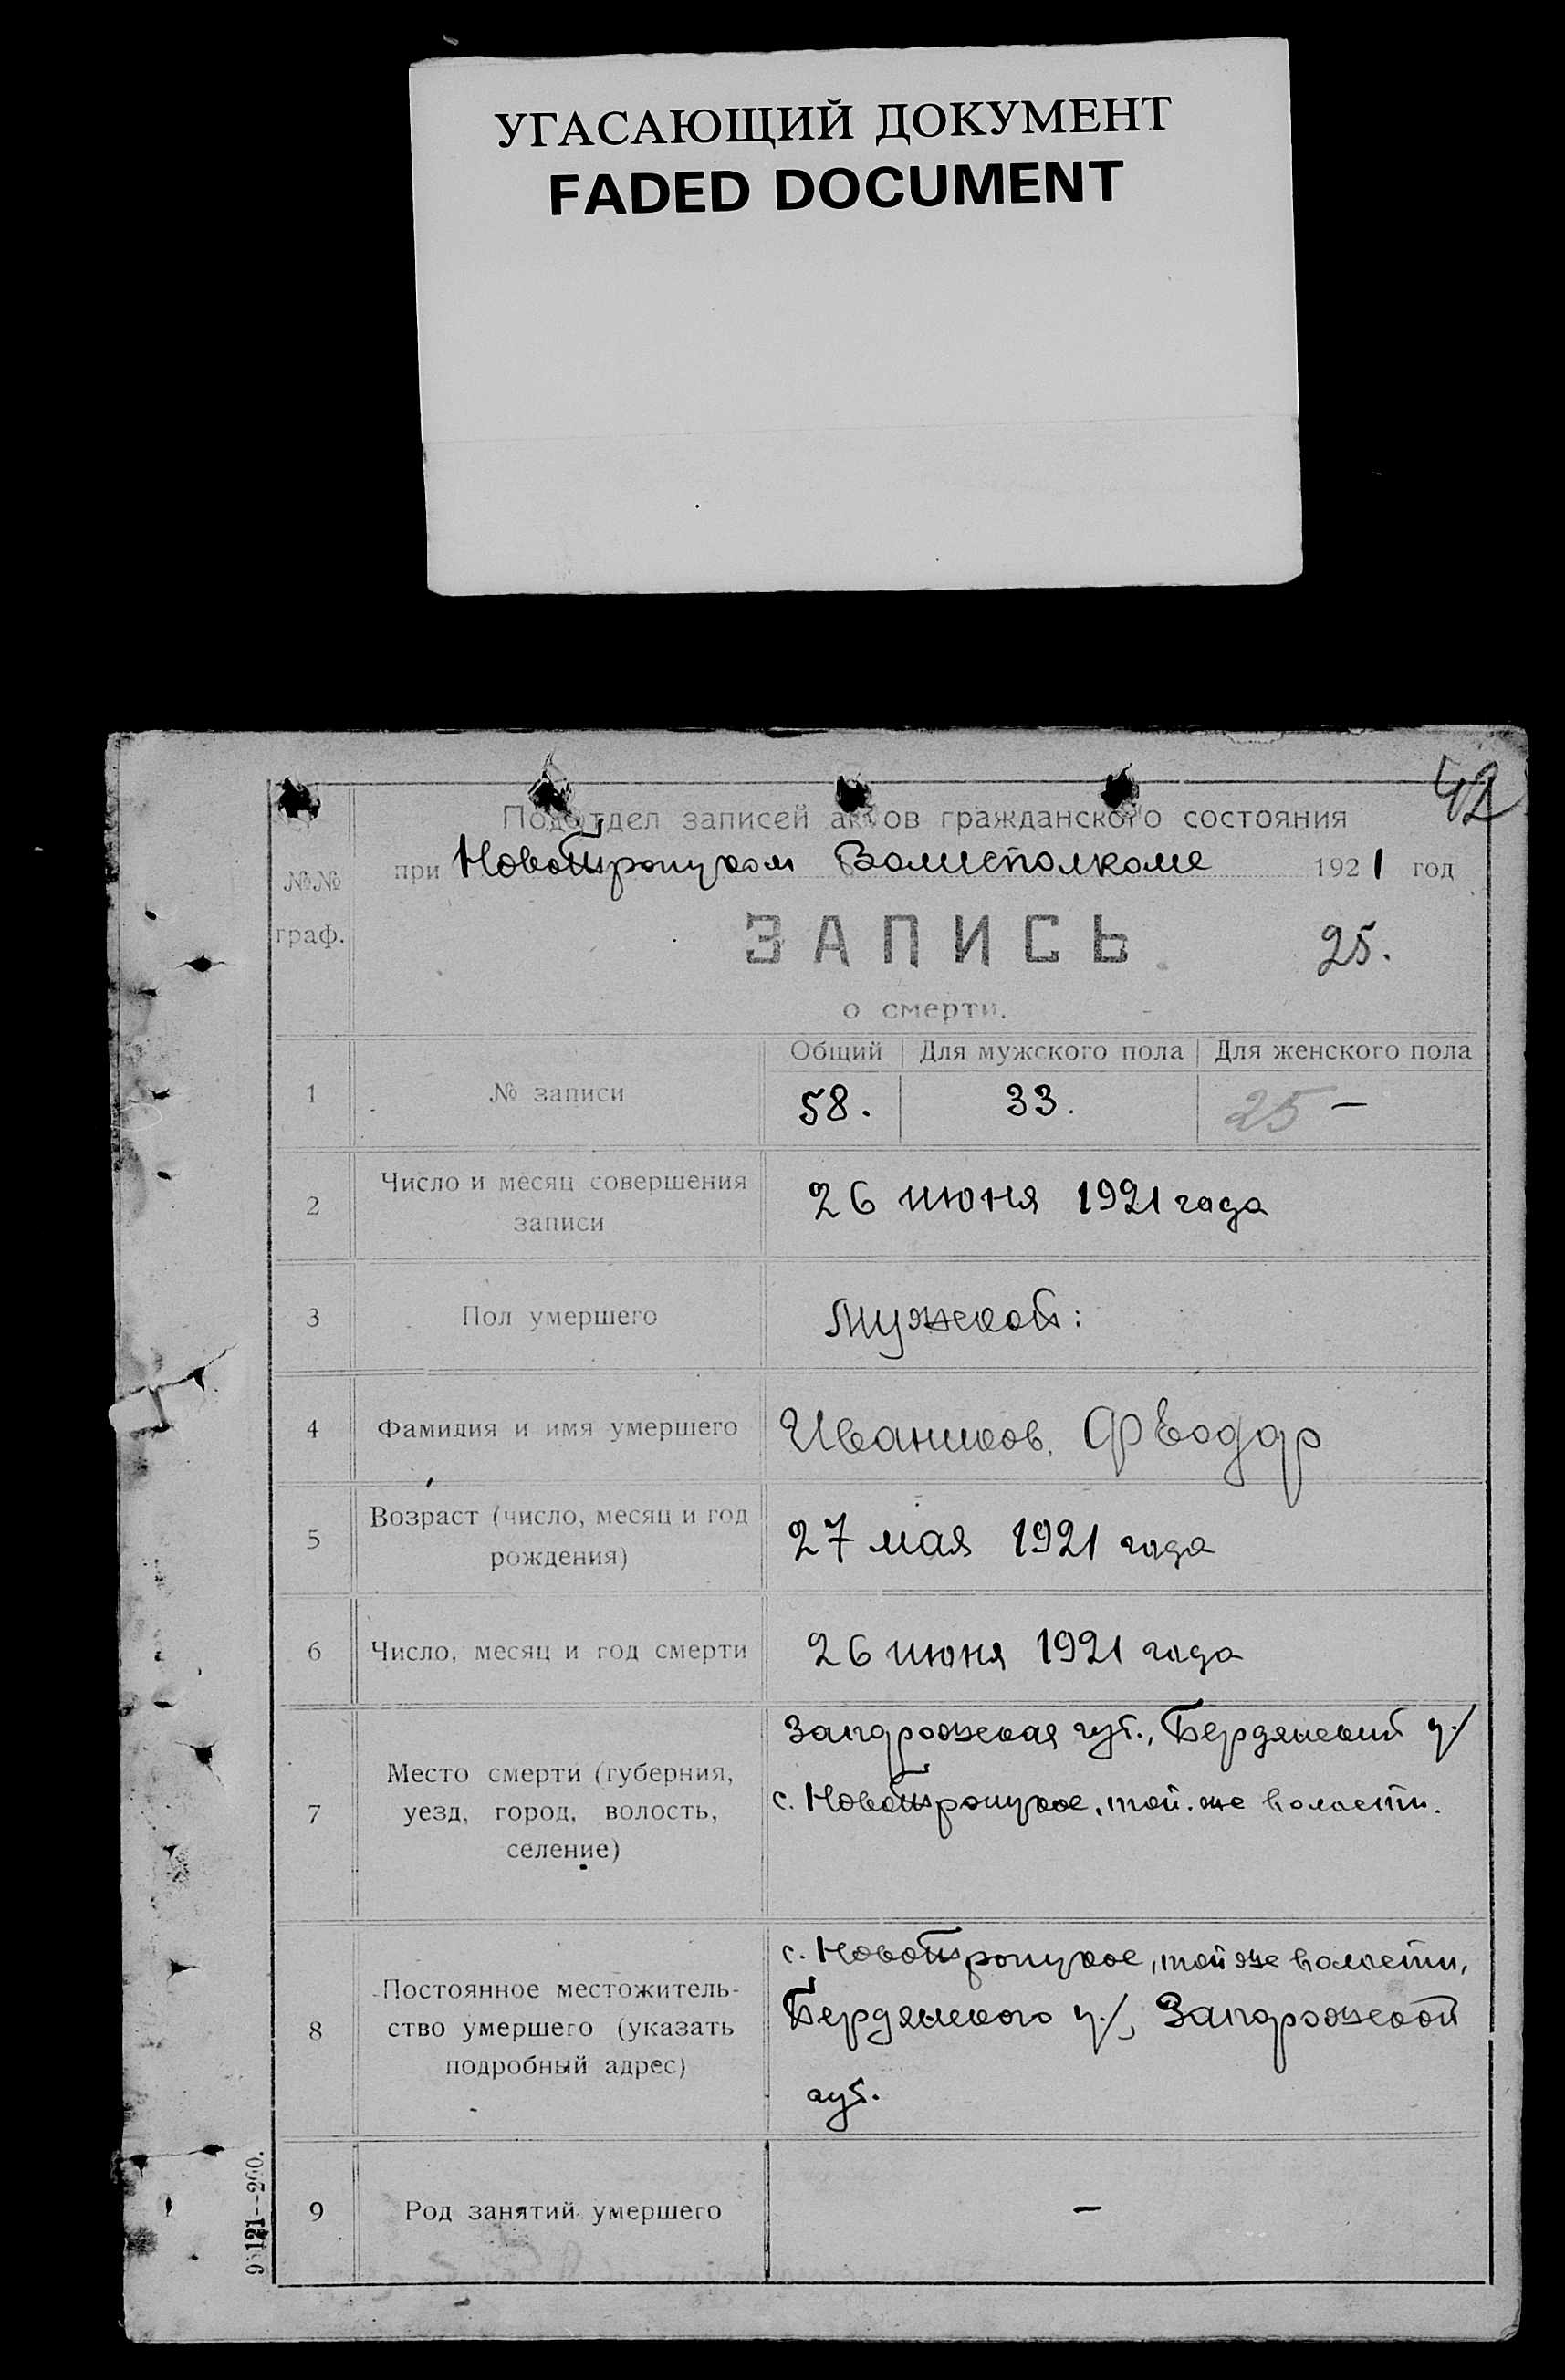 УГАСАЮЩИЙ ДОКУМЕНТ
FADED DOCUMENT
42
Подотдел записей актов гражданского состояния
при Новотроицком Волисполкоме 1921 год
№№
граф.
ЗАПИСЬ 25.
о смерти.
Общий Для мужского пола Для женского пола
1 № записи 58. 33. 25 —
2 Число и месяц совершения
записи
26 июня 1921 года
3 Пол умершего Мужской:
4 Фамилия и имя умершего Иваников, Феодор
5 Возраст (число, месяц и год
рождения)
27 мая 1921 года
6 Число, месяц и год смерти 26 июня 1921 года
7 Место смерти (губерния,
уезд, город, волость,
селение)
Запорожская губ., Бердянский у./
с. Новотроицкое, той-же волости.
8 Постоянное местожитель-
ство умершего (указать
подробный адрес)
с. Новотроицкое, той же волости,
Бердянского у./, Запорожской
губ.
9 Род занятий умершего —